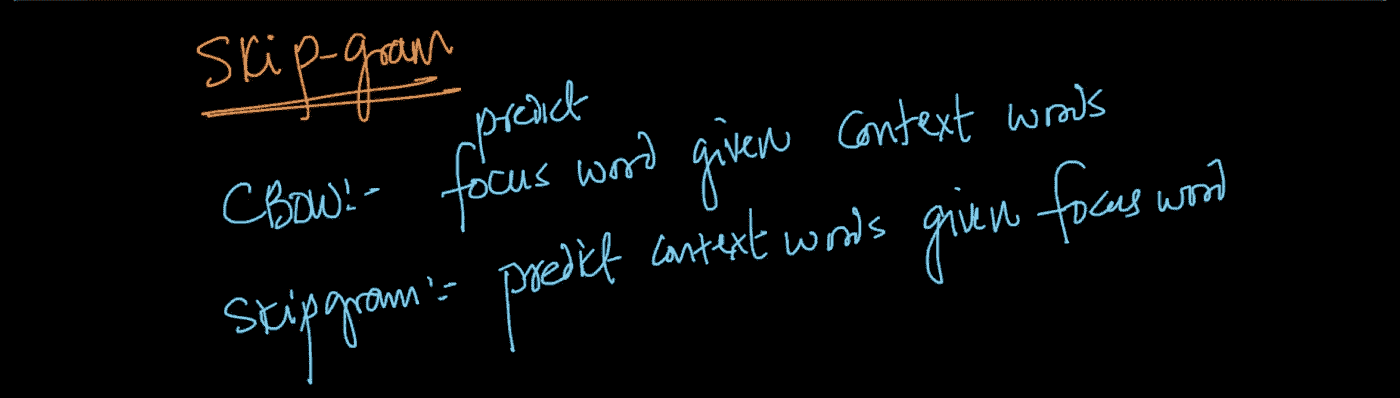 Skip-gram
predict
CBOW:- focus word given context words
Skipgram:- predict context words given focus word